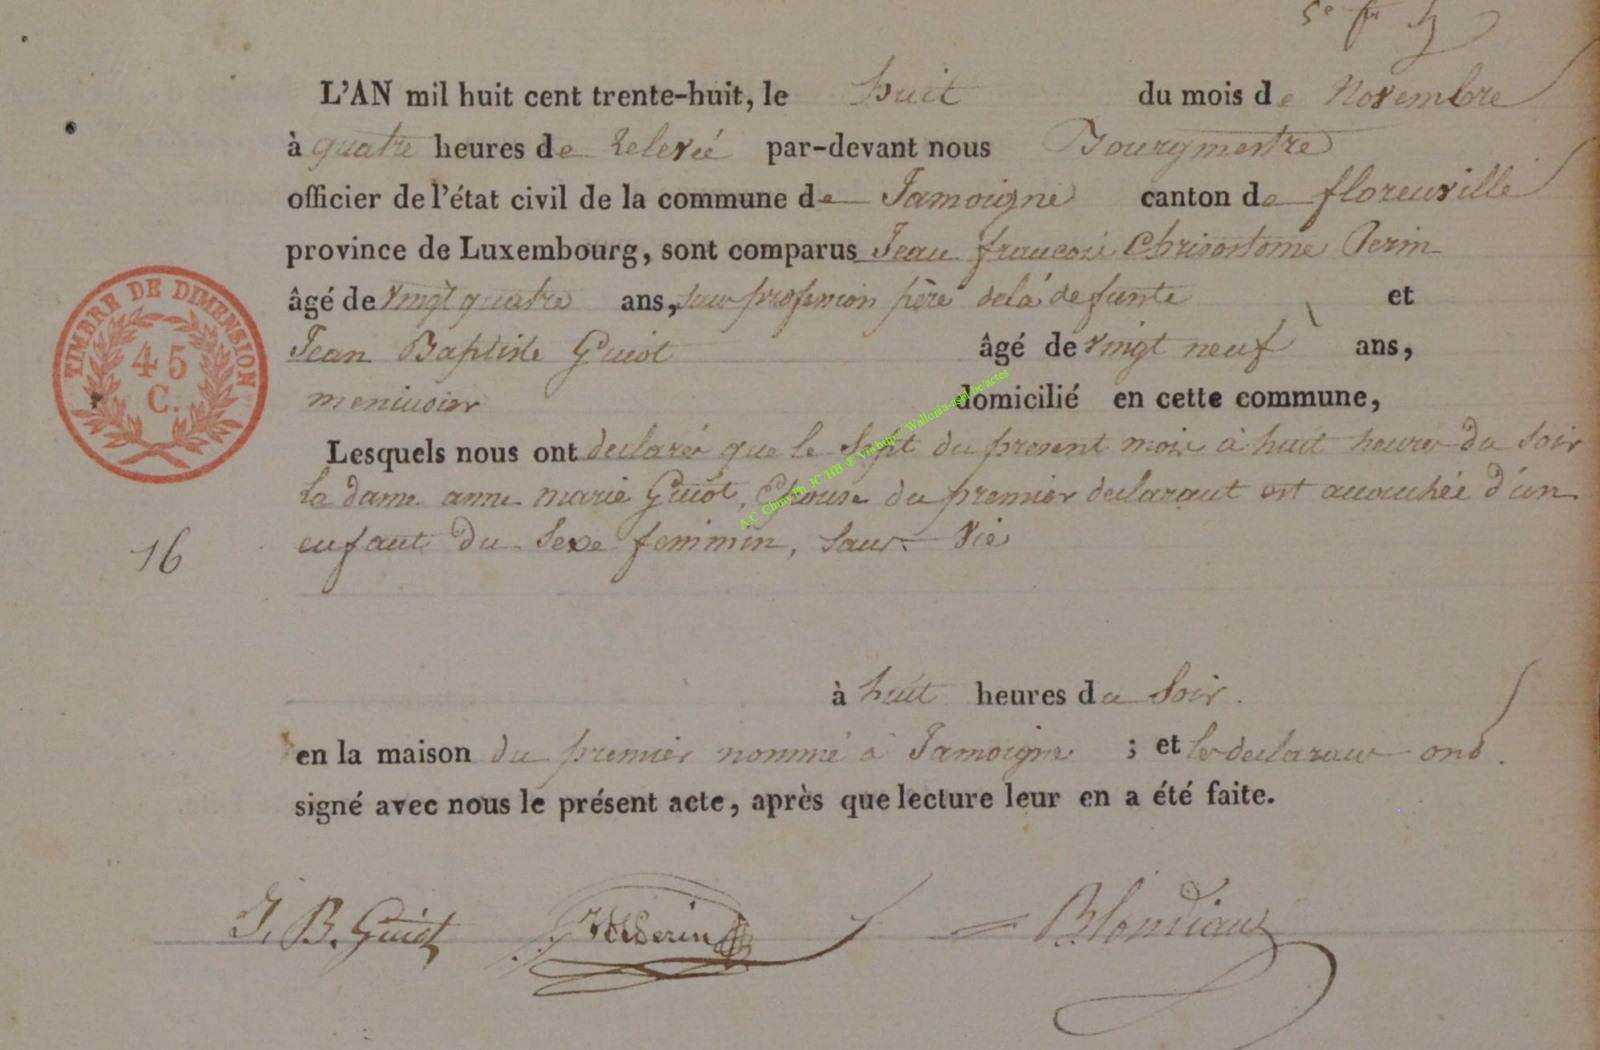 L'AN mil huit cent trente-huit, le huit du mois de Novembre
à quatre heures de Relevée par-devant nous Bourgmestre
officier de l'état civil de la commune de Jamoigne canton de florenville
province de Luxembourg, sont comparus Jean françois Chrisostome Perin
âgé de vingt quatre ans, sans profession père de la defunte et
Jean Baptiste Guiot âgé de vingt neuf ans,
menuisier domicilié en cette commune,
Lesquels nous ont declaré que le Sept du present mois à huit heures du Soir
la dame anne marie Guiot, Epouse du premier declarant est accouchée d'un
enfant du Sexe feminin, Sans Vie
à huit heures du Soir.
en la maison du premier nommé à Jamoigne ; et les declarans ont
signé avec nous le présent acte, après que lecture leur en a été faite.
TIMBRE DE DIMENSION
45
C.
16
J. B. Guiot Perin Blondiaux